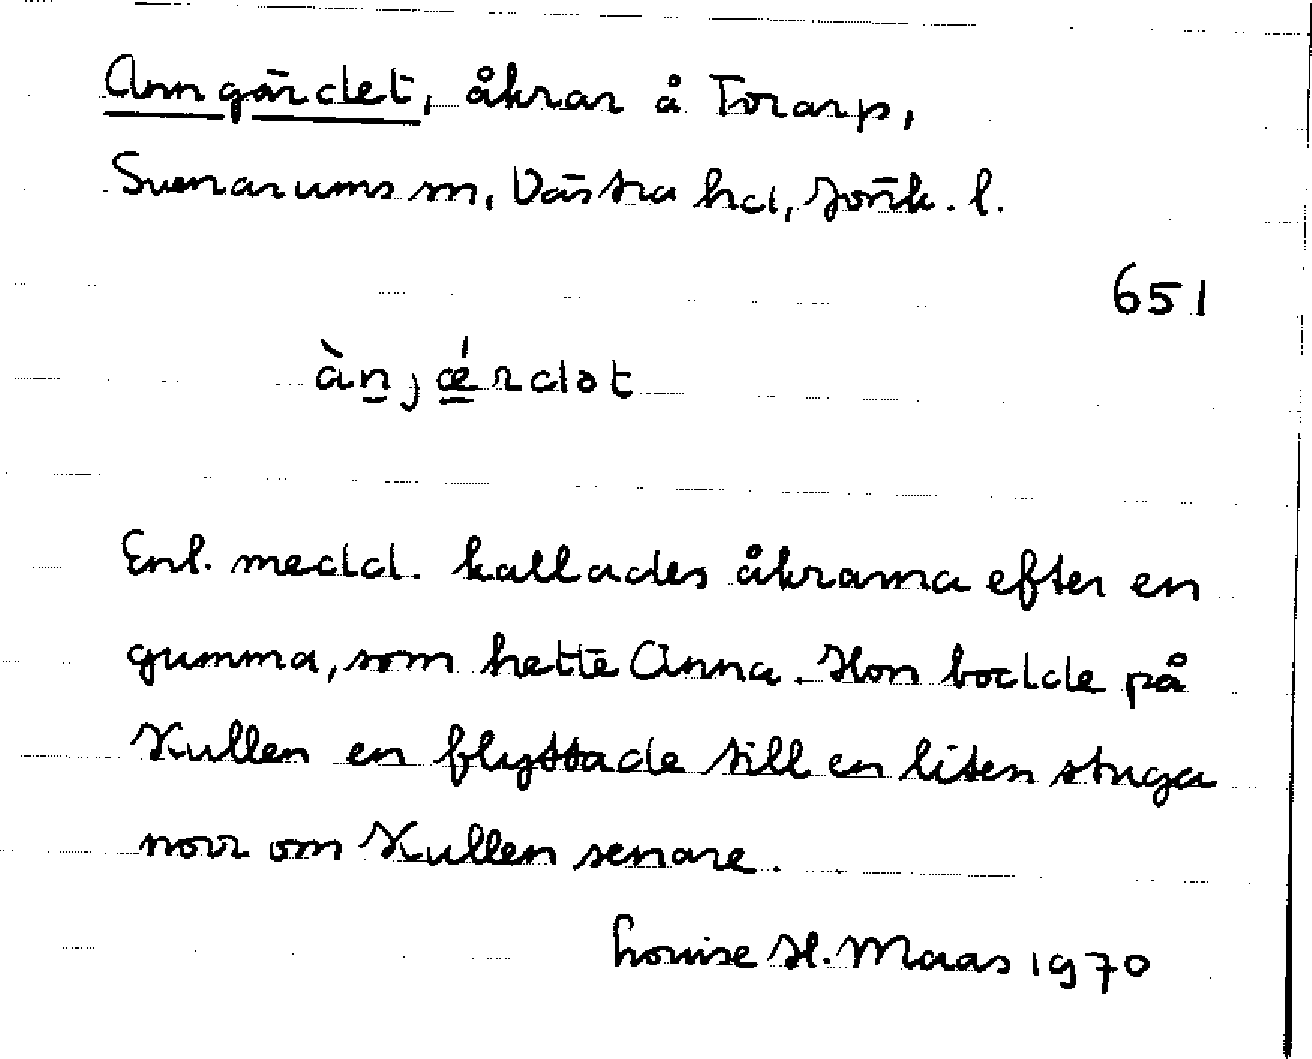 Anngärdet, åkrar å Torarp,
Svenarums sn, Västra hd, Jönk. l.
651
àn̲jǽ̲rdət
Enl. medd. kallades åkrarna efter en
gumma, som hette Anna. Hon bodde på
Kullen en flyttade till en liten stuga
norr om Kullen senare.
Louise H. Maas 1970